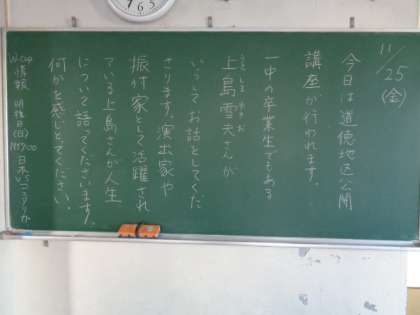 11/25(金)
今日は道徳地区公開
講座が行われます。
一中の卒業生でもある
上島雪夫さんが
いらしてお話をしてくだ
さります。演出家や
振付家として活躍され
ている上島さんが人生
について語ってくださいます。
何かを感じとってください。
W-cup情報 明後日(日)19:00 日本vsコスタリカ